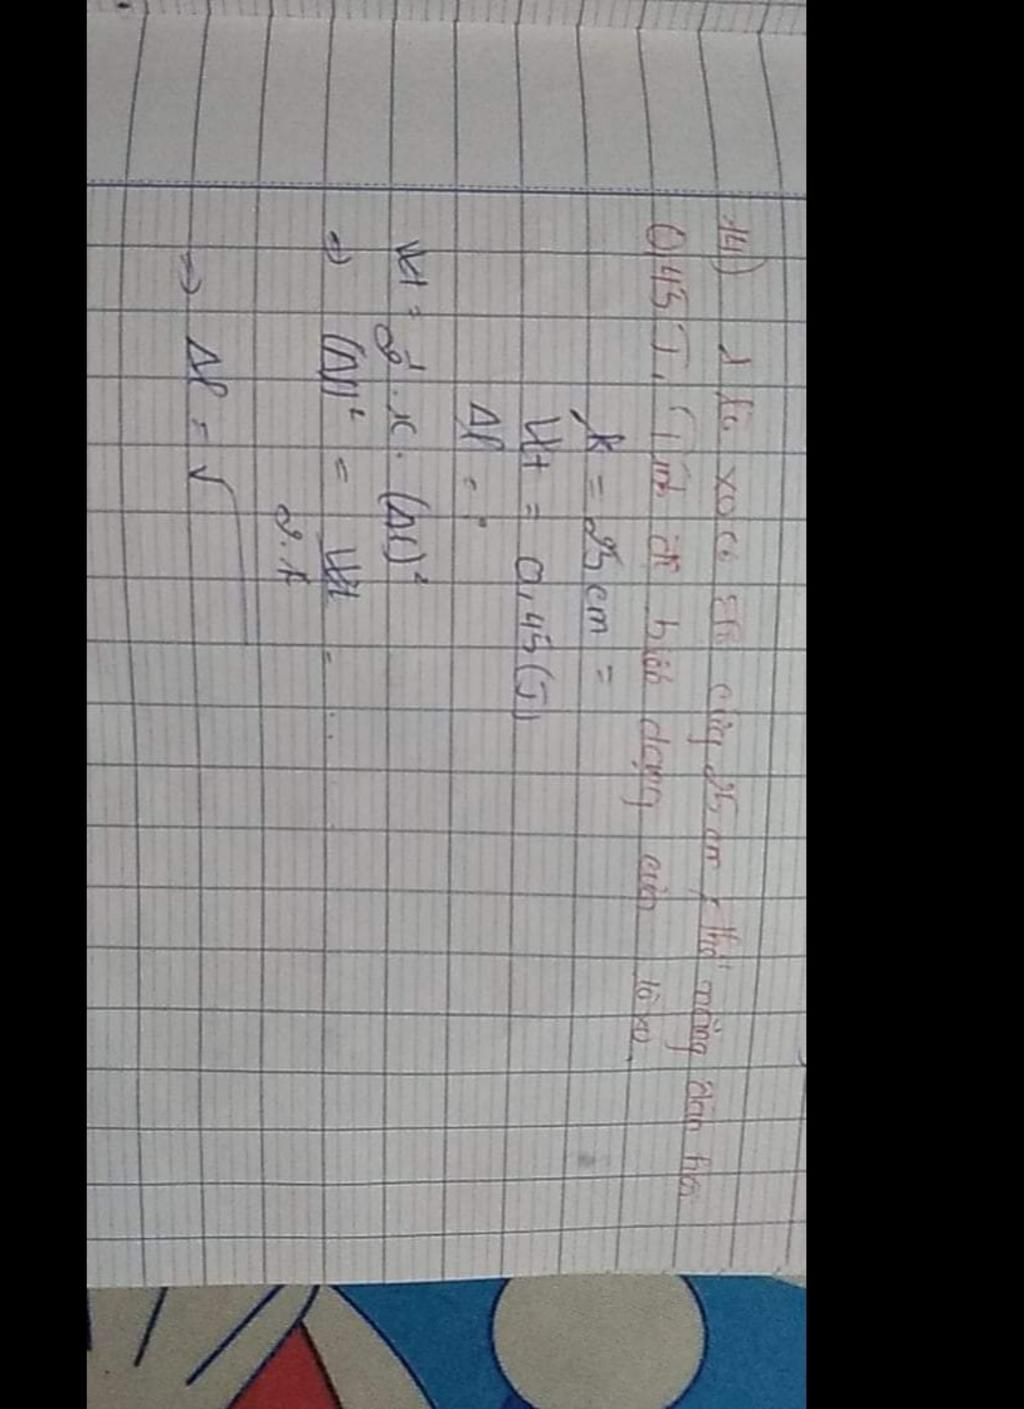 14) 1 lò xo có độ cứng 25 cm, thế năng đàn hồi
0,45 J. Tính độ biến dạng của lò xo.
k = 25 cm =
Wt = 0,45 (J)
Δl = ?
Wt = 2. k. (Δl)²
=> (Δl)² = Wt = ...
2. k
=> Δl = √